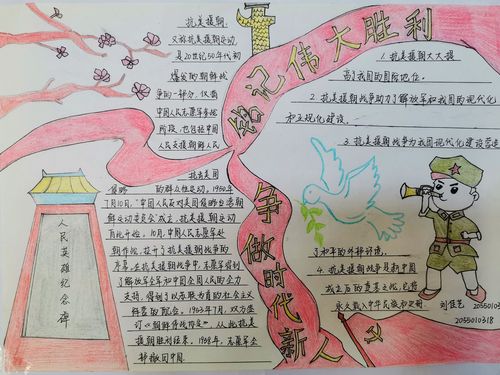 铭记伟大胜利
争做时代新人
抗美援朝,
又称抗美援朝运动,
是20世纪50年代初
爆发的朝鲜战
争的一部分,仅指
中国人民志愿军参战
阶段,也包括中国
人民支援朝鲜人民
抗击美国
侵略 的群众性运动。1950年
7月10日,"中国人民反对美国侵略台湾朝
鲜运动委员会"成立,抗美援朝运动
自此开始。10月,中国人民志愿军赴
朝作战,拉开了抗美援朝战争的
序幕。在抗美援朝战争中,志愿军得到
了解放军全军和中国全国人民的全力
支持,得到了以苏联为首的社会主义
阵营的配合。1953年7月,双方签
订《朝鲜停战协定》,从此抗美
援朝胜利结束。1958年,志愿军全
部撤回中国。
人民英雄纪念碑
1.抗美援朝大大提
高了我国的国际地位。
2.抗美援朝战争助力了解放军和我国的现代化
和正规化建设。
3.抗美援朝战争为我国现代化建设营造
了和平的外部环境。
4.抗美援朝战争是新中国
成立之后的立国之战,它将
永久载入中华民族和
刘佳艺
2055010318